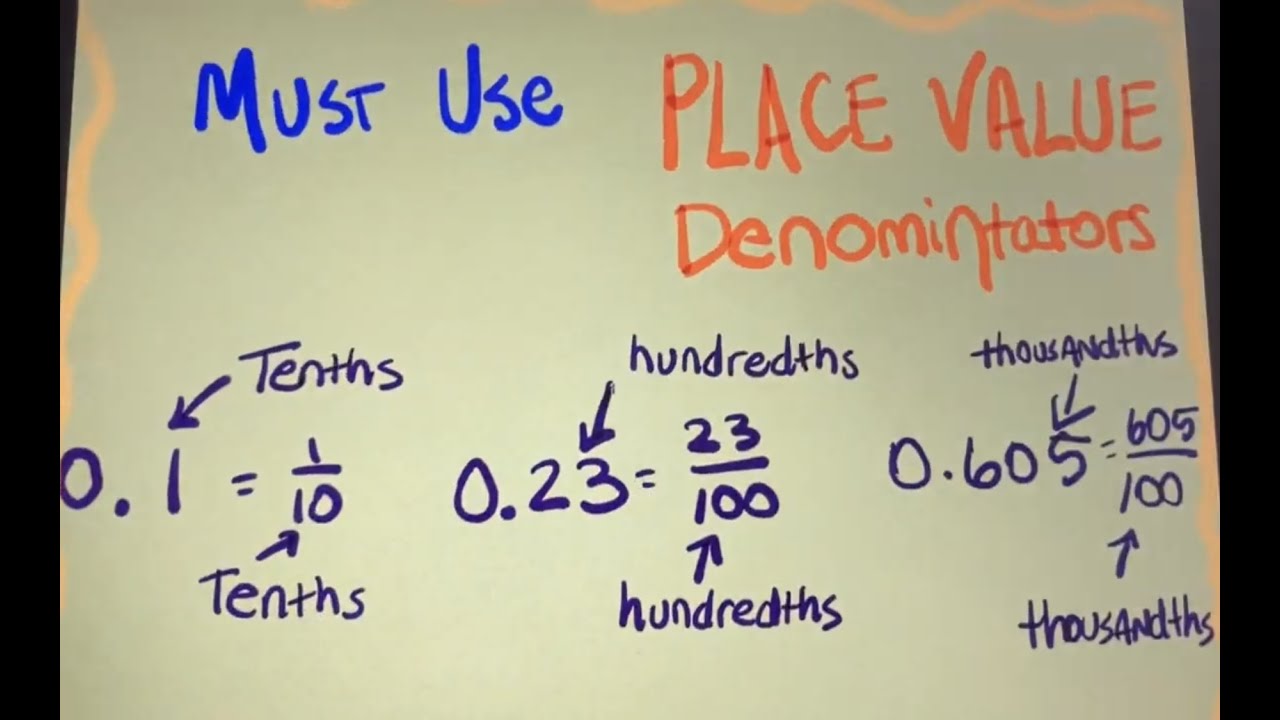 Must Use PLACE VALUE
Denomintators
Tenths hundredths thousandths
0.1 = 1/10 0.23 = 23/100 0.605 = 605/100
Tenths hundredths thousandths